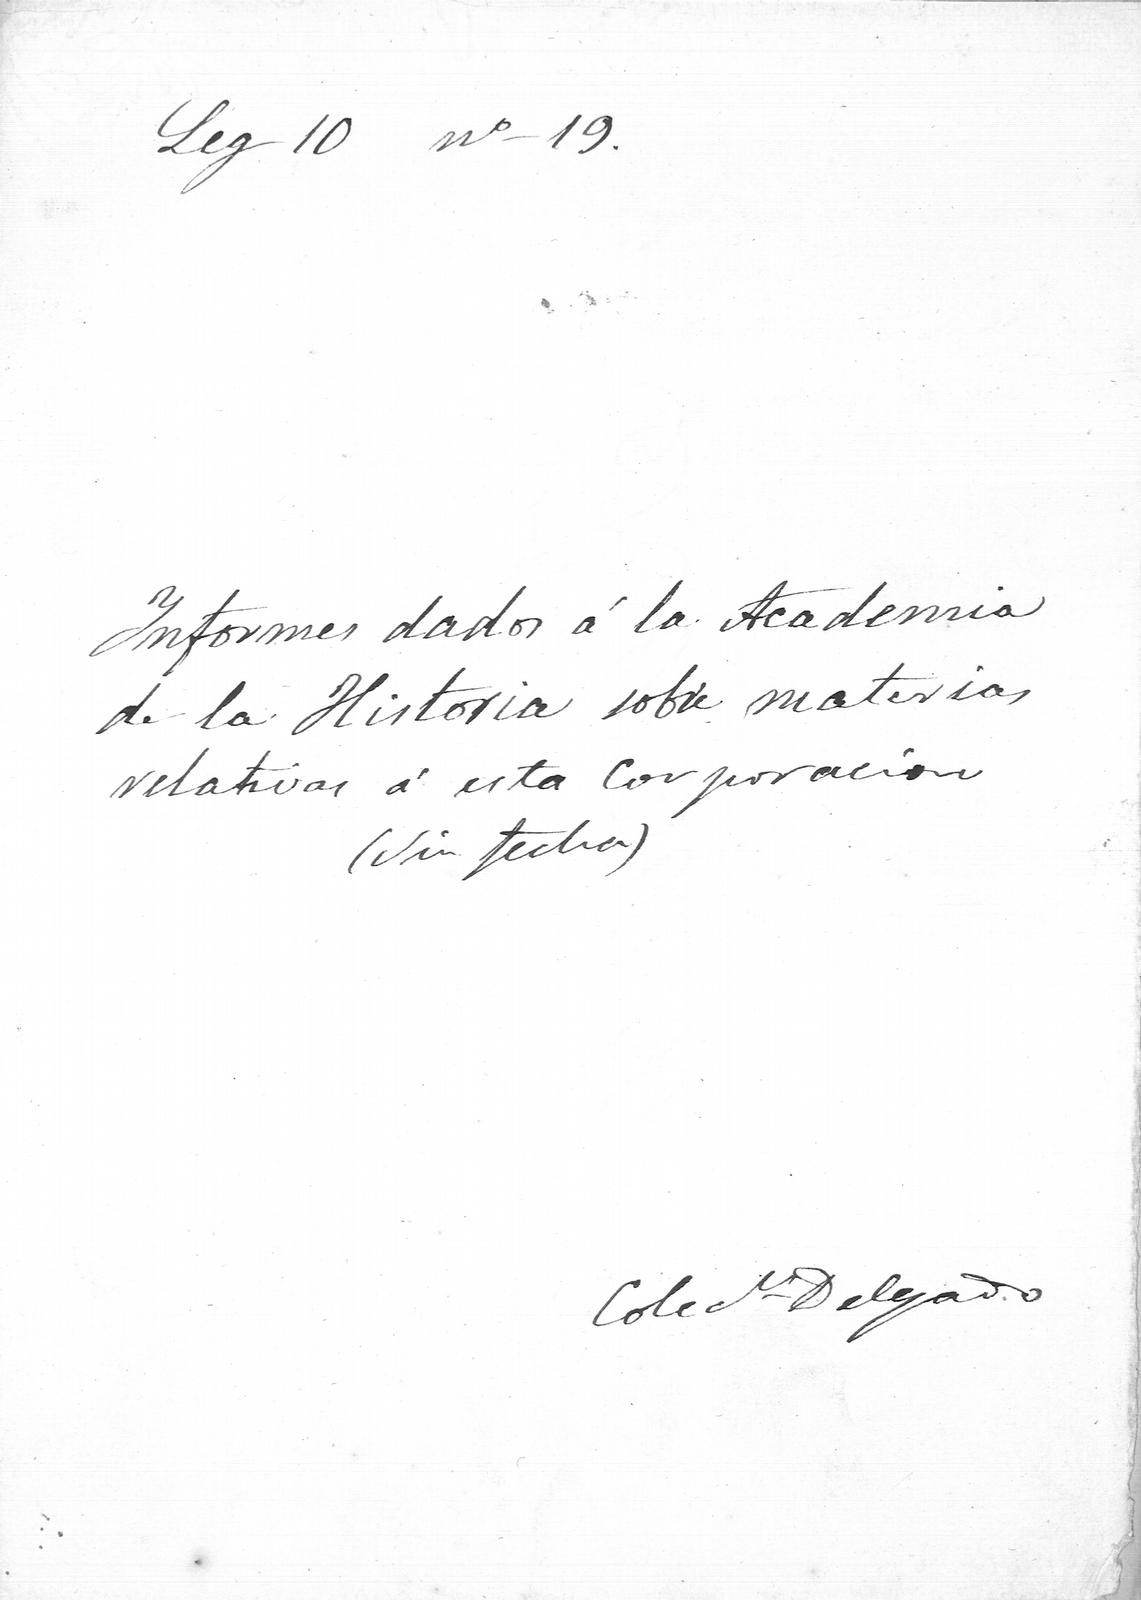 Leg 10 nº 19.
Informes dados á la Academia
de la Historia sobre materias
relativas á esta Corporacion
(Sin fecha)
Colecn Delgado